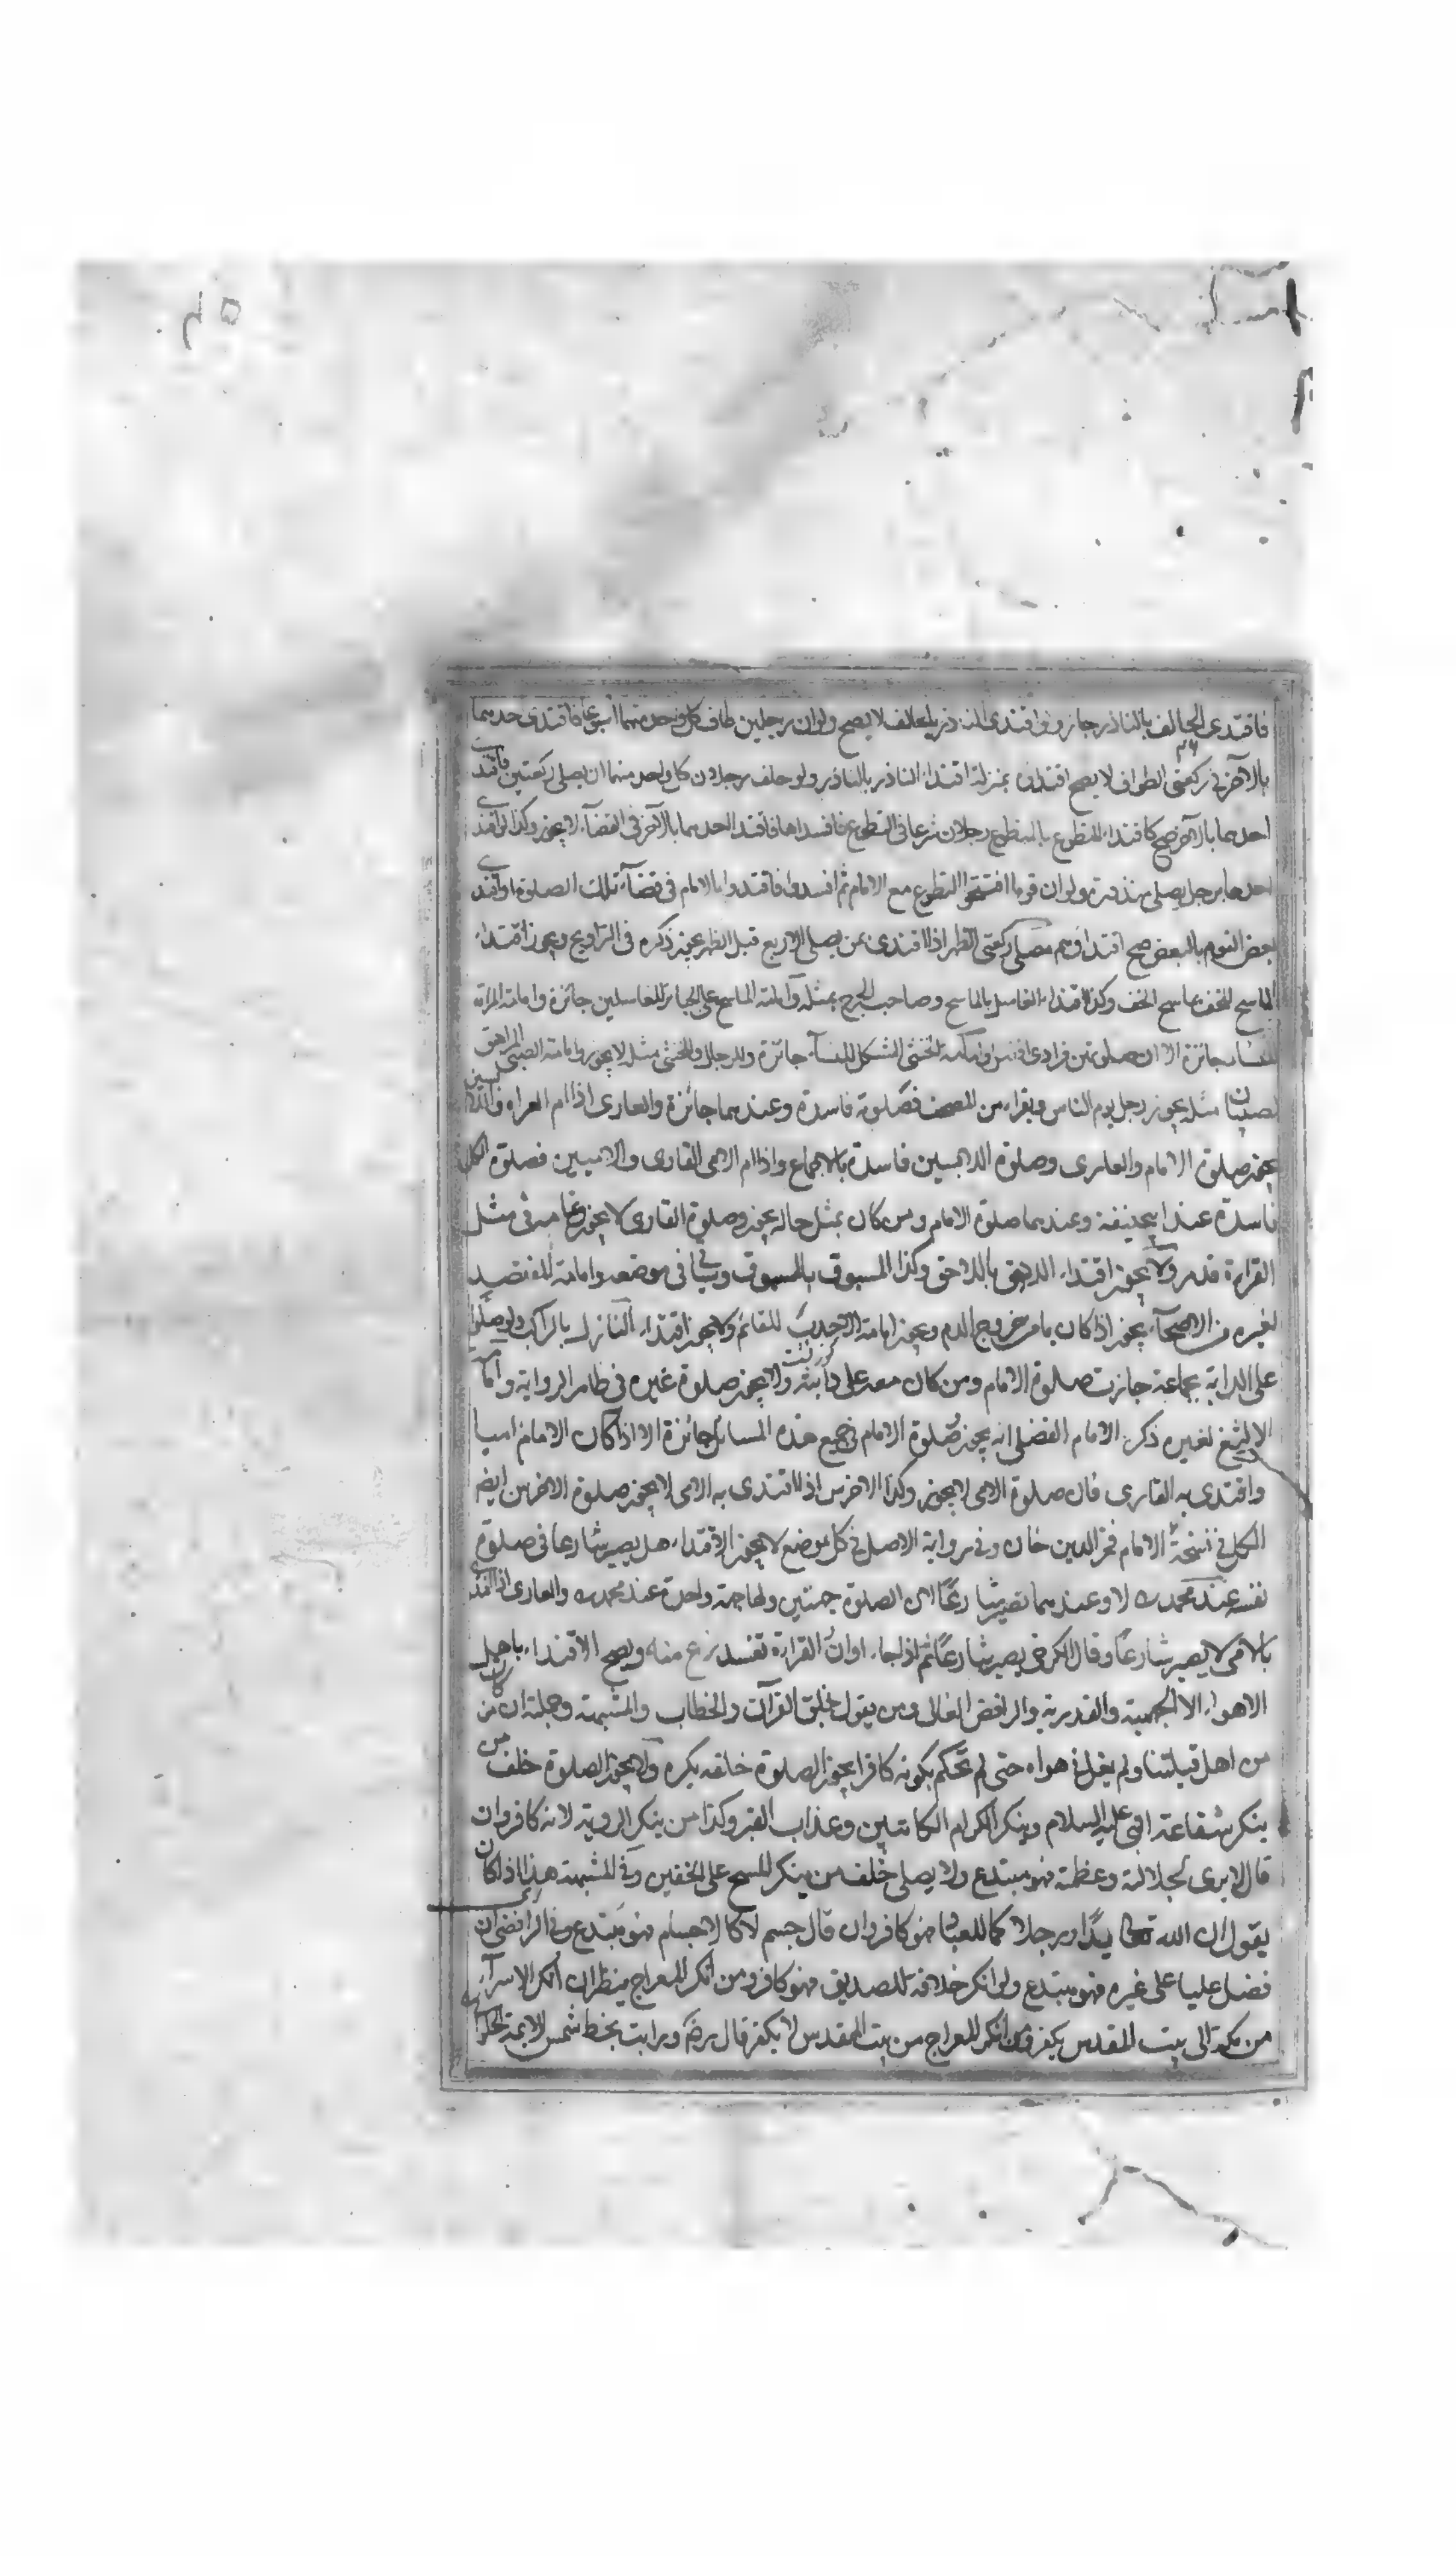 فاقتدى الحالف بالناذر جاز ولو اقتدى الناذر بالحالف لا يصح ولو ان رجلين طاف كل واحد منهما اسبوعا فاقتدى احدهما
بالآخر في ركعتي الطواف لا يصح اقتداؤه بمنزلة اقتداء الناذر بالناذر ولو حلف رجلان كل واحد منهما ان يصلي ركعتين فاقتدى
احدهما بالآخر صح كاقتداء المتطوع بالمتطوع رجلان شرعا في التطوع فافسداها فاقتدا احدهما بالآخر في القضاء لا يجوز وكذا لو اقتدى
احدهما برجل يصلي منذورته ولو ان قوما افتتحوا التطوع مع الامام ثم افسدوا فاقتدوا بالامام في قضاء تلك الصلوة او اقتدى
بعض القوم بالبعض صح اقتداؤهم مصلي ركعتي الظهر اذا اقتدى بمن يصلي الاربع قبل الظهر يجوز ذكره في التراويح ويجوز اقتداء
الماسح الخف بماسح الخف وكذا اقتداء الغاسل بالماسح وصاحب الجرح بمثله وامامة الماسح على الجبائر للغاسلين جائزة وامامة المرأة
للنساء جائزة الا ان صلوتهن فرادى افضل وامامة الخنثى المشكل للنساء جائزة وللرجال وللخنثى مثله لا يجوز وامامة الصبي المراهق
لصبيان مثله يجوز رجل يوم الناس ويقراء من المصحف فصلوته فاسدة وعندهما جائزة والعارى اذا ام العراه واللابسين
يجوز صلوة الامام والعارى وصلوة اللابسين فاسدة بالاجماع واذا ام الامى القارى والاميين فصلوة الكل
فاسدة عند ابيحنيفة وعندهما صلوة الامام ومن كان بمثل حاله يجوز وصلوة القارى لا يجوز مر في مثل
القراءة قدمر ولا يجوز اقتداء اللاحق باللاحق وكذا المسبوق بالمسبوق وسياتي في موضعه وامامة المفتصد
لغيره من الاصحاء يجوز اذا كان يامن خروج الدم ويجوز امامة الاحدب للقائم ولا يجوز اقتداء النازل بالراكب ولو صلوا
على الدابة بجماعة جازت صلوة الامام ومن كان معه على دابته ولا يجوز صلوة غيره في ظاهر الرواية وامامة
الالثغ لغيره ذكر الامام الفضلي انه يجوز صلوة الامام في جميع هذه المسائل جائزة الا اذا كان الامام اميا
واقتدى به القارى فان صلوة الامى لا يجوز وكذا الاخرس اذا اقتدى به الامى لا يجوز صلوة الاخرس ايضا
الكل في نسخة الامام فخر الدين خان وفى رواية الاصل في كل موضع لا يجوز الاقتداء هل يصير شارعا في صلوة
نفسه عند محمد رح لا وعندهما تصير شارعًا لان الصلوة جهتين ولها جهة واحدة عند محمد رح والعارى اذا اقتدى
بالامى لا يصير شارعًا وقال الكرخى يصير شارعًا ثم اذا جاء اوان القراءة تفسد ويصح الاقتداء باهل
الاهواء الا الجهمية والقدرية والرافض الغالى ومن يقول بخلق القرآن والخطاب والمشبهة وجملته ان من كان
من اهل قبلتنا ولم يغل في هواه حتى لم تحكم بكونه كافرا يجوز الصلوة خلفه يكره ولا يجوز الصلوة خلف من
ينكر شفاعة النبي عليه السلام وينكر الكرام الكاتبين وعذاب القبر وكذا من ينكر الروية لانه كافر وان
قال لا يرى لجلالته وعظمته فهو مبتدع ولا يصلى خلف من ينكر المسح على الخفين وفى المشبهة هذا اذا كان
يقول ان الله تعالى يدًا ورجلا كما للعباد فهو كافر وان قال جسم لا كالاجسام فهو مبتدع وفى الرافضى ان
فضل عليا على غيره فهو مبتدع ولو انكر خلافة الصديق فهو كافر ومن انكر المعراج ينظر ان انكر الاسراء
من مكة الى بيت المقدس يكفر وان انكر المعراج من بيت المقدس لا يكفر قال رضى ورايت بخط شمس الايمة الحلوانى